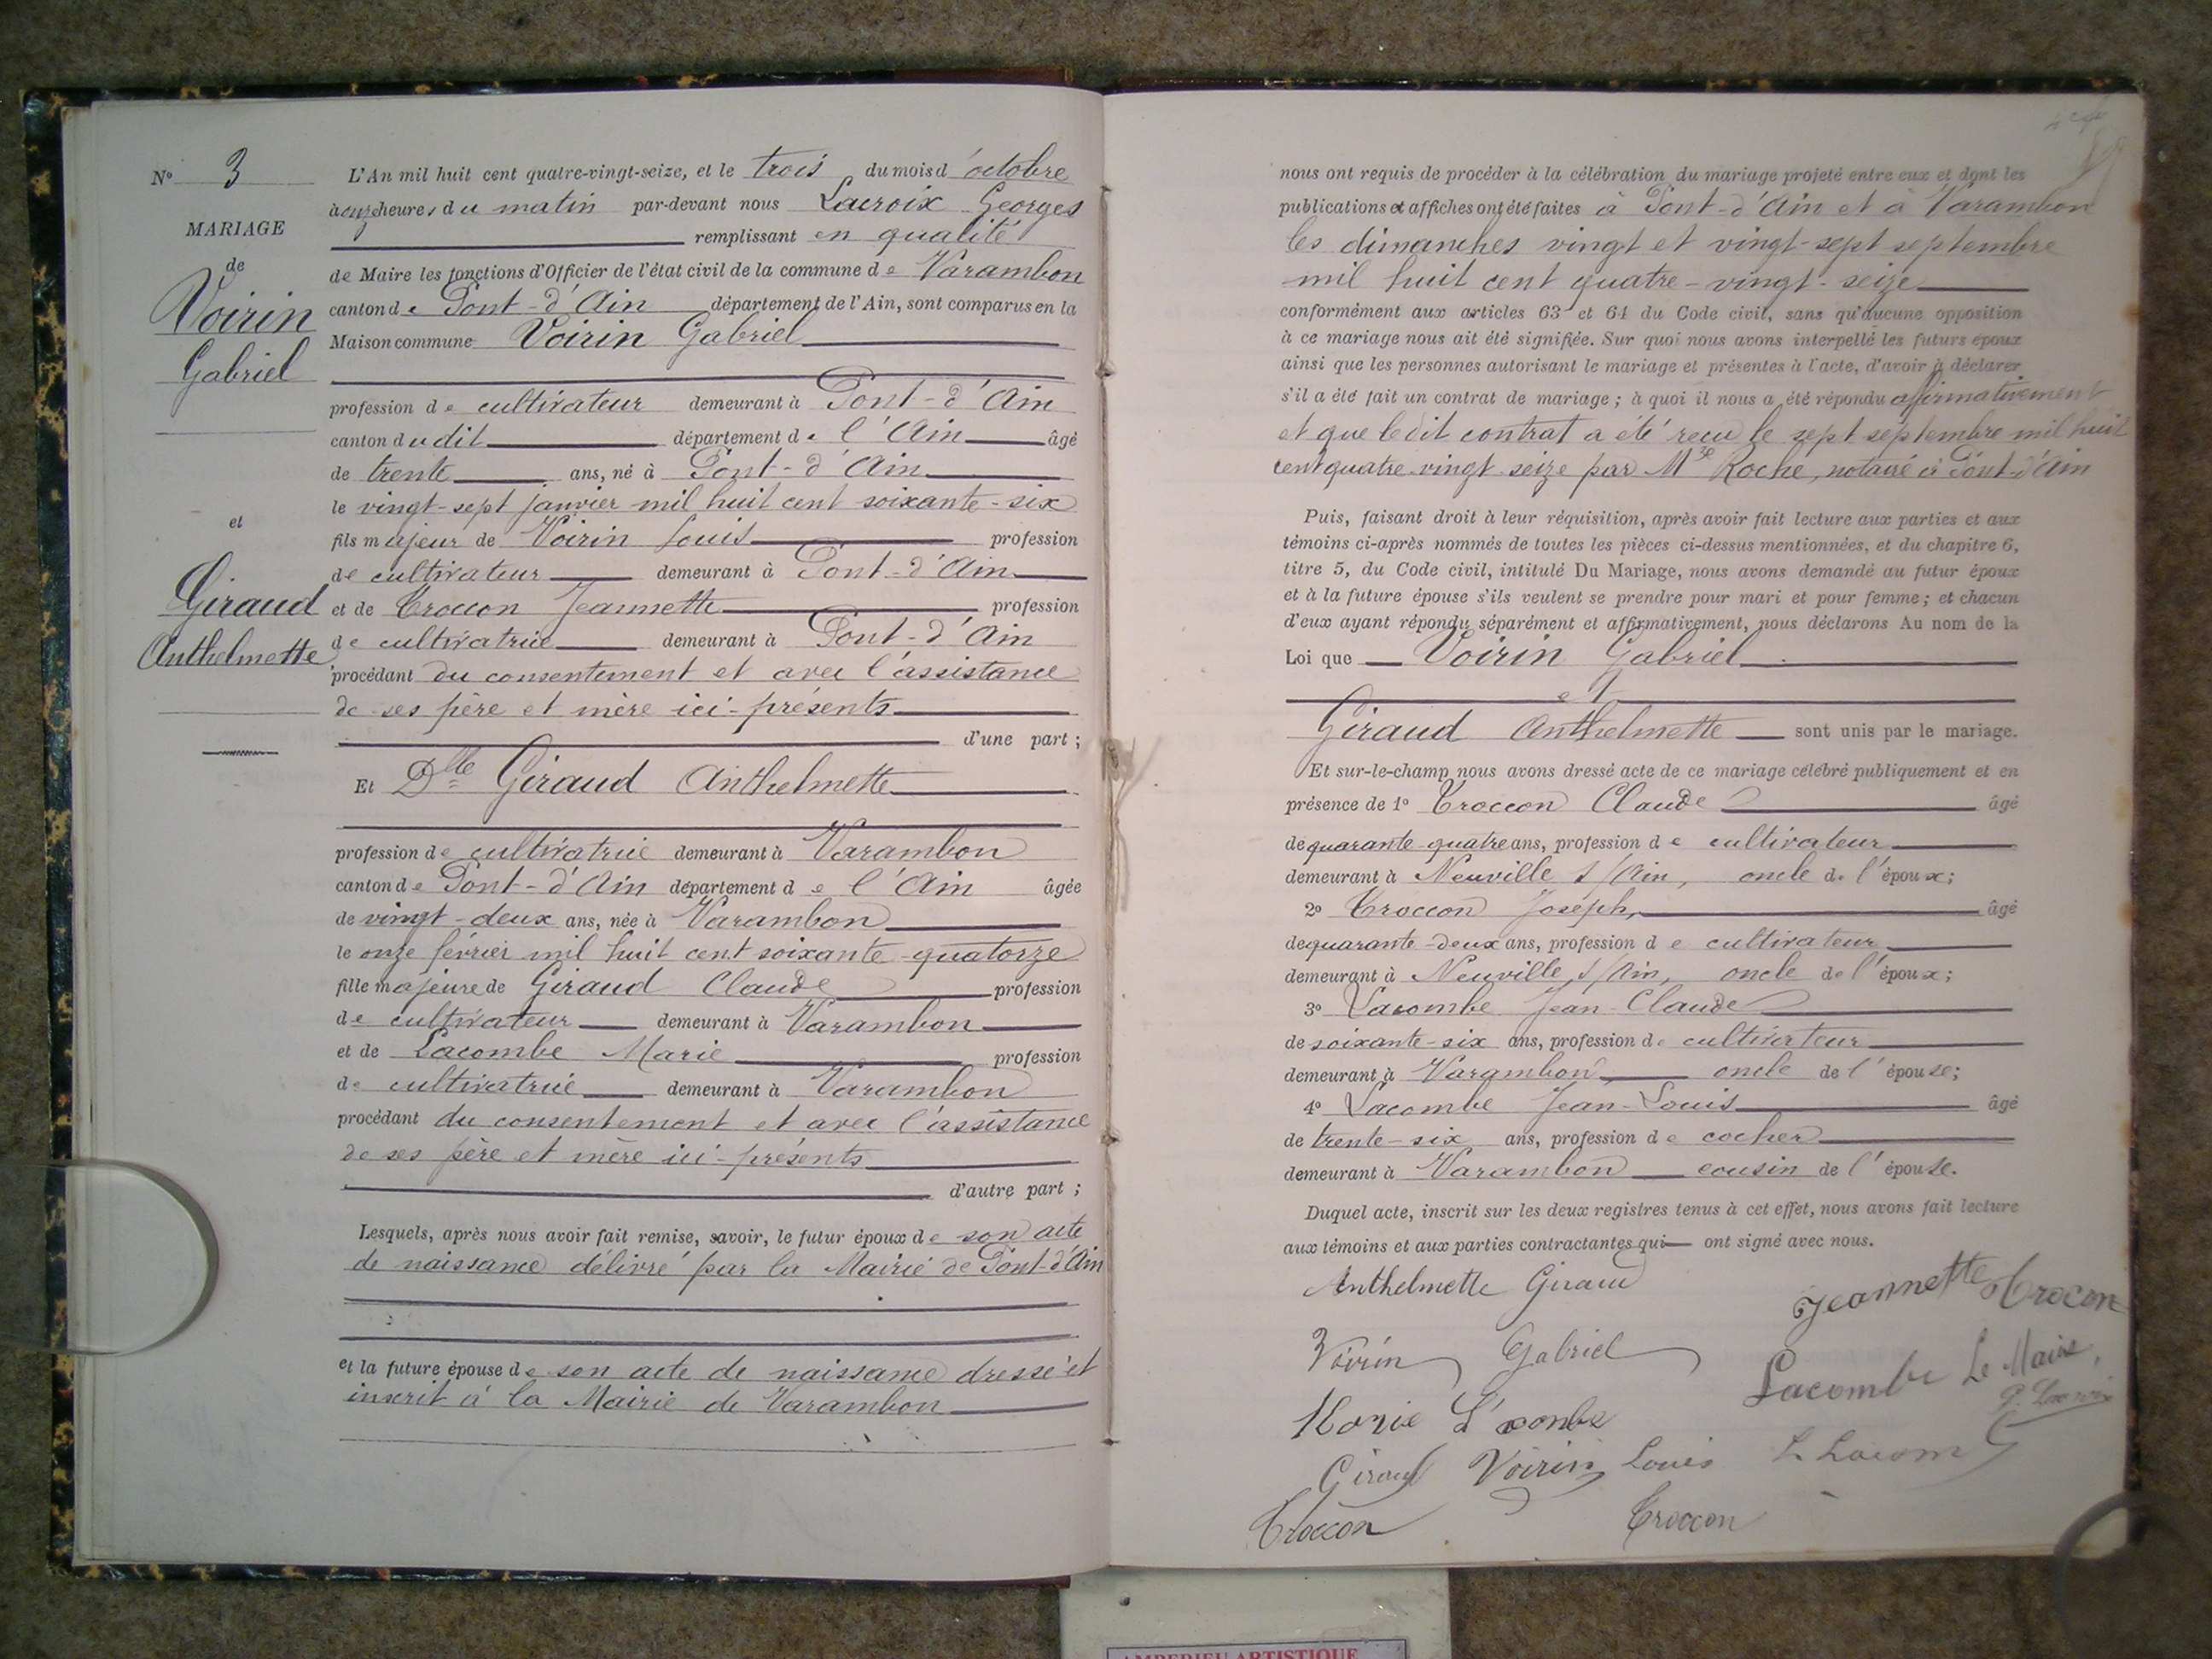 N° 3
MARIAGE
de
Voirin
Gabriel
et
Giraud
Anthelmette
L'An mil huit cent quatre-vingt-seize, et le trois du mois d'octobre
à onze heures du matin par-devant nous Lacroix Georges
remplissant en qualité
de Maire les fonctions d'Officier de l'état civil de la commune de Varambon
canton de Pont-d'Ain département de l'Ain, sont comparus en la
Maison commune Voirin Gabriel
profession de cultivateur demeurant à Pont-d'Ain
canton dudit département de l'Ain âgé
de trente ans, né à Pont-d'Ain
le vingt-sept janvier mil huit cent soixante-six
fils majeur de Voirin Louis profession
de cultivateur demeurant à Pont-d'Ain
et de Troccon Jeannette profession
de cultivatrice demeurant à Pont-d'Ain
procédant du consentement et avec l'assistance
de ses père et mère ici-présents
d'une part ;
Et Dlle Giraud Anthelmette
profession de cultivatrice demeurant à Varambon
canton de Pont-d'Ain département de l'Ain âgée
de vingt-deux ans, née à Varambon
le onze février mil huit cent soixante-quatorze
fille majeure de Giraud Claude profession
de cultivateur demeurant à Varambon
et de Lacombe Marie profession
de cultivatrice demeurant à Varambon
procédant du consentement et avec l'assistance
de ses père et mère ici-présents
d'autre part ;
Lesquels, après nous avoir fait remise, savoir, le futur époux de son acte
de naissance délivré par la Mairie de Pont-d'Ain
et la future épouse de son acte de naissance dressé et
inscrit à la Mairie de Varambon
nous ont requis de procéder à la célébration du mariage projeté entre eux et dont les
publications et affiches ont été faites à Pont-d'Ain et à Varambon
les dimanches vingt et vingt-sept septembre
mil huit cent quatre-vingt-seize
conformément aux articles 63 et 64 du Code civil, sans qu'aucune opposition
à ce mariage nous ait été signifiée. Sur quoi nous avons interpellé les futurs époux
ainsi que les personnes autorisant le mariage et présentes à l'acte, d'avoir à déclarer
s'il a été fait un contrat de mariage ; à quoi il nous a été répondu affirmativement
et que ledit contrat a été reçu le sept septembre mil huit
cent quatre-vingt-seize par Me Roche, notaire à Pont-d'Ain
Puis, faisant droit à leur réquisition, après avoir fait lecture aux parties et aux
témoins ci-après nommés de toutes les pièces ci-dessus mentionnées, et du chapitre 6,
titre 5, du Code civil, intitulé Du Mariage, nous avons demandé au futur époux
et à la future épouse s'ils veulent se prendre pour mari et pour femme ; et chacun
d'eux ayant répondu séparément et affirmativement, nous déclarons Au nom de la
Loi que Voirin Gabriel
et
Giraud Anthelmette sont unis par le mariage.
Et sur-le-champ nous avons dressé acte de ce mariage célébré publiquement et en
présence de 1° Troccon Claude âgé
de quarante-quatre ans, profession de cultivateur
demeurant à Neuville s/Ain, oncle de l'époux ;
2° Troccon Joseph, âgé
de quarante-deux ans, profession de cultivateur
demeurant à Neuville s/Ain, oncle de l'époux ;
3° Lacombe Jean-Claude
de soixante-six ans, profession de cultivateur
demeurant à Varambon, oncle de l'épouse ;
4° Lacombe Jean-Louis âgé
de trente-six ans, profession de cocher
demeurant à Varambon cousin de l'épouse.
Duquel acte, inscrit sur les deux registres tenus à cet effet, nous avons fait lecture
aux témoins et aux parties contractantes qui ont signé avec nous.
Anthelmette Giraud
Jeannette Trocon
Voirin Gabriel
Lacombe Le Maire,
G. Lacroix
Marie Lacombe
Giraud Voirin Louis L Lacombe
Troccon Troccon
AMBERIEU ARTISTIQUE